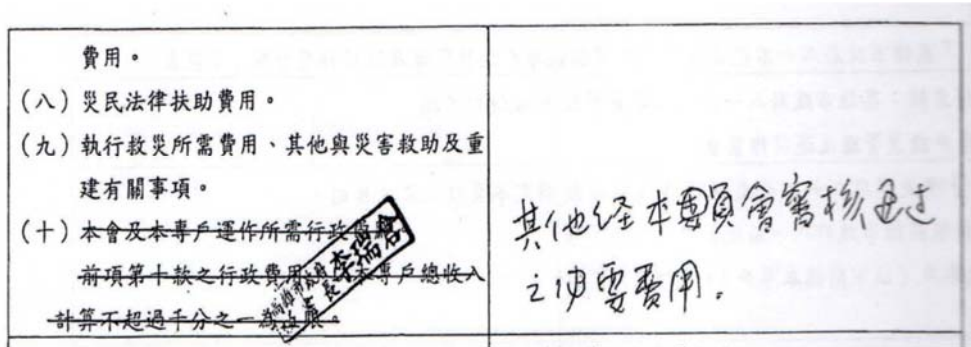 費用。
(八)災民法律扶助費用。
(九)執行救災所需費用、其他與災害救助及重
建有關事項。
(十)本會及本專戶運作所需行政費用
前項第十款之行政費用 本專戶總收入
計算不超過千分之一為 限。
李瑞倉
其他経本委員會審核通过
之必要費用.